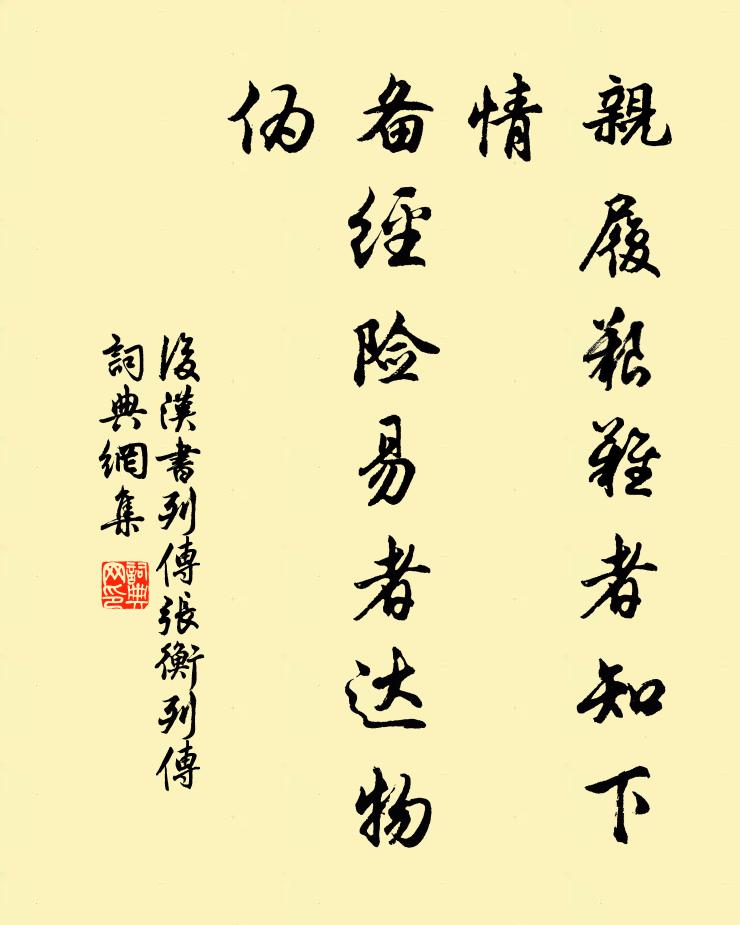 親履艱難者知下
情
备經险易者达物
伪
後漢書列傳張衡列傳
詞典網集
詞典網印